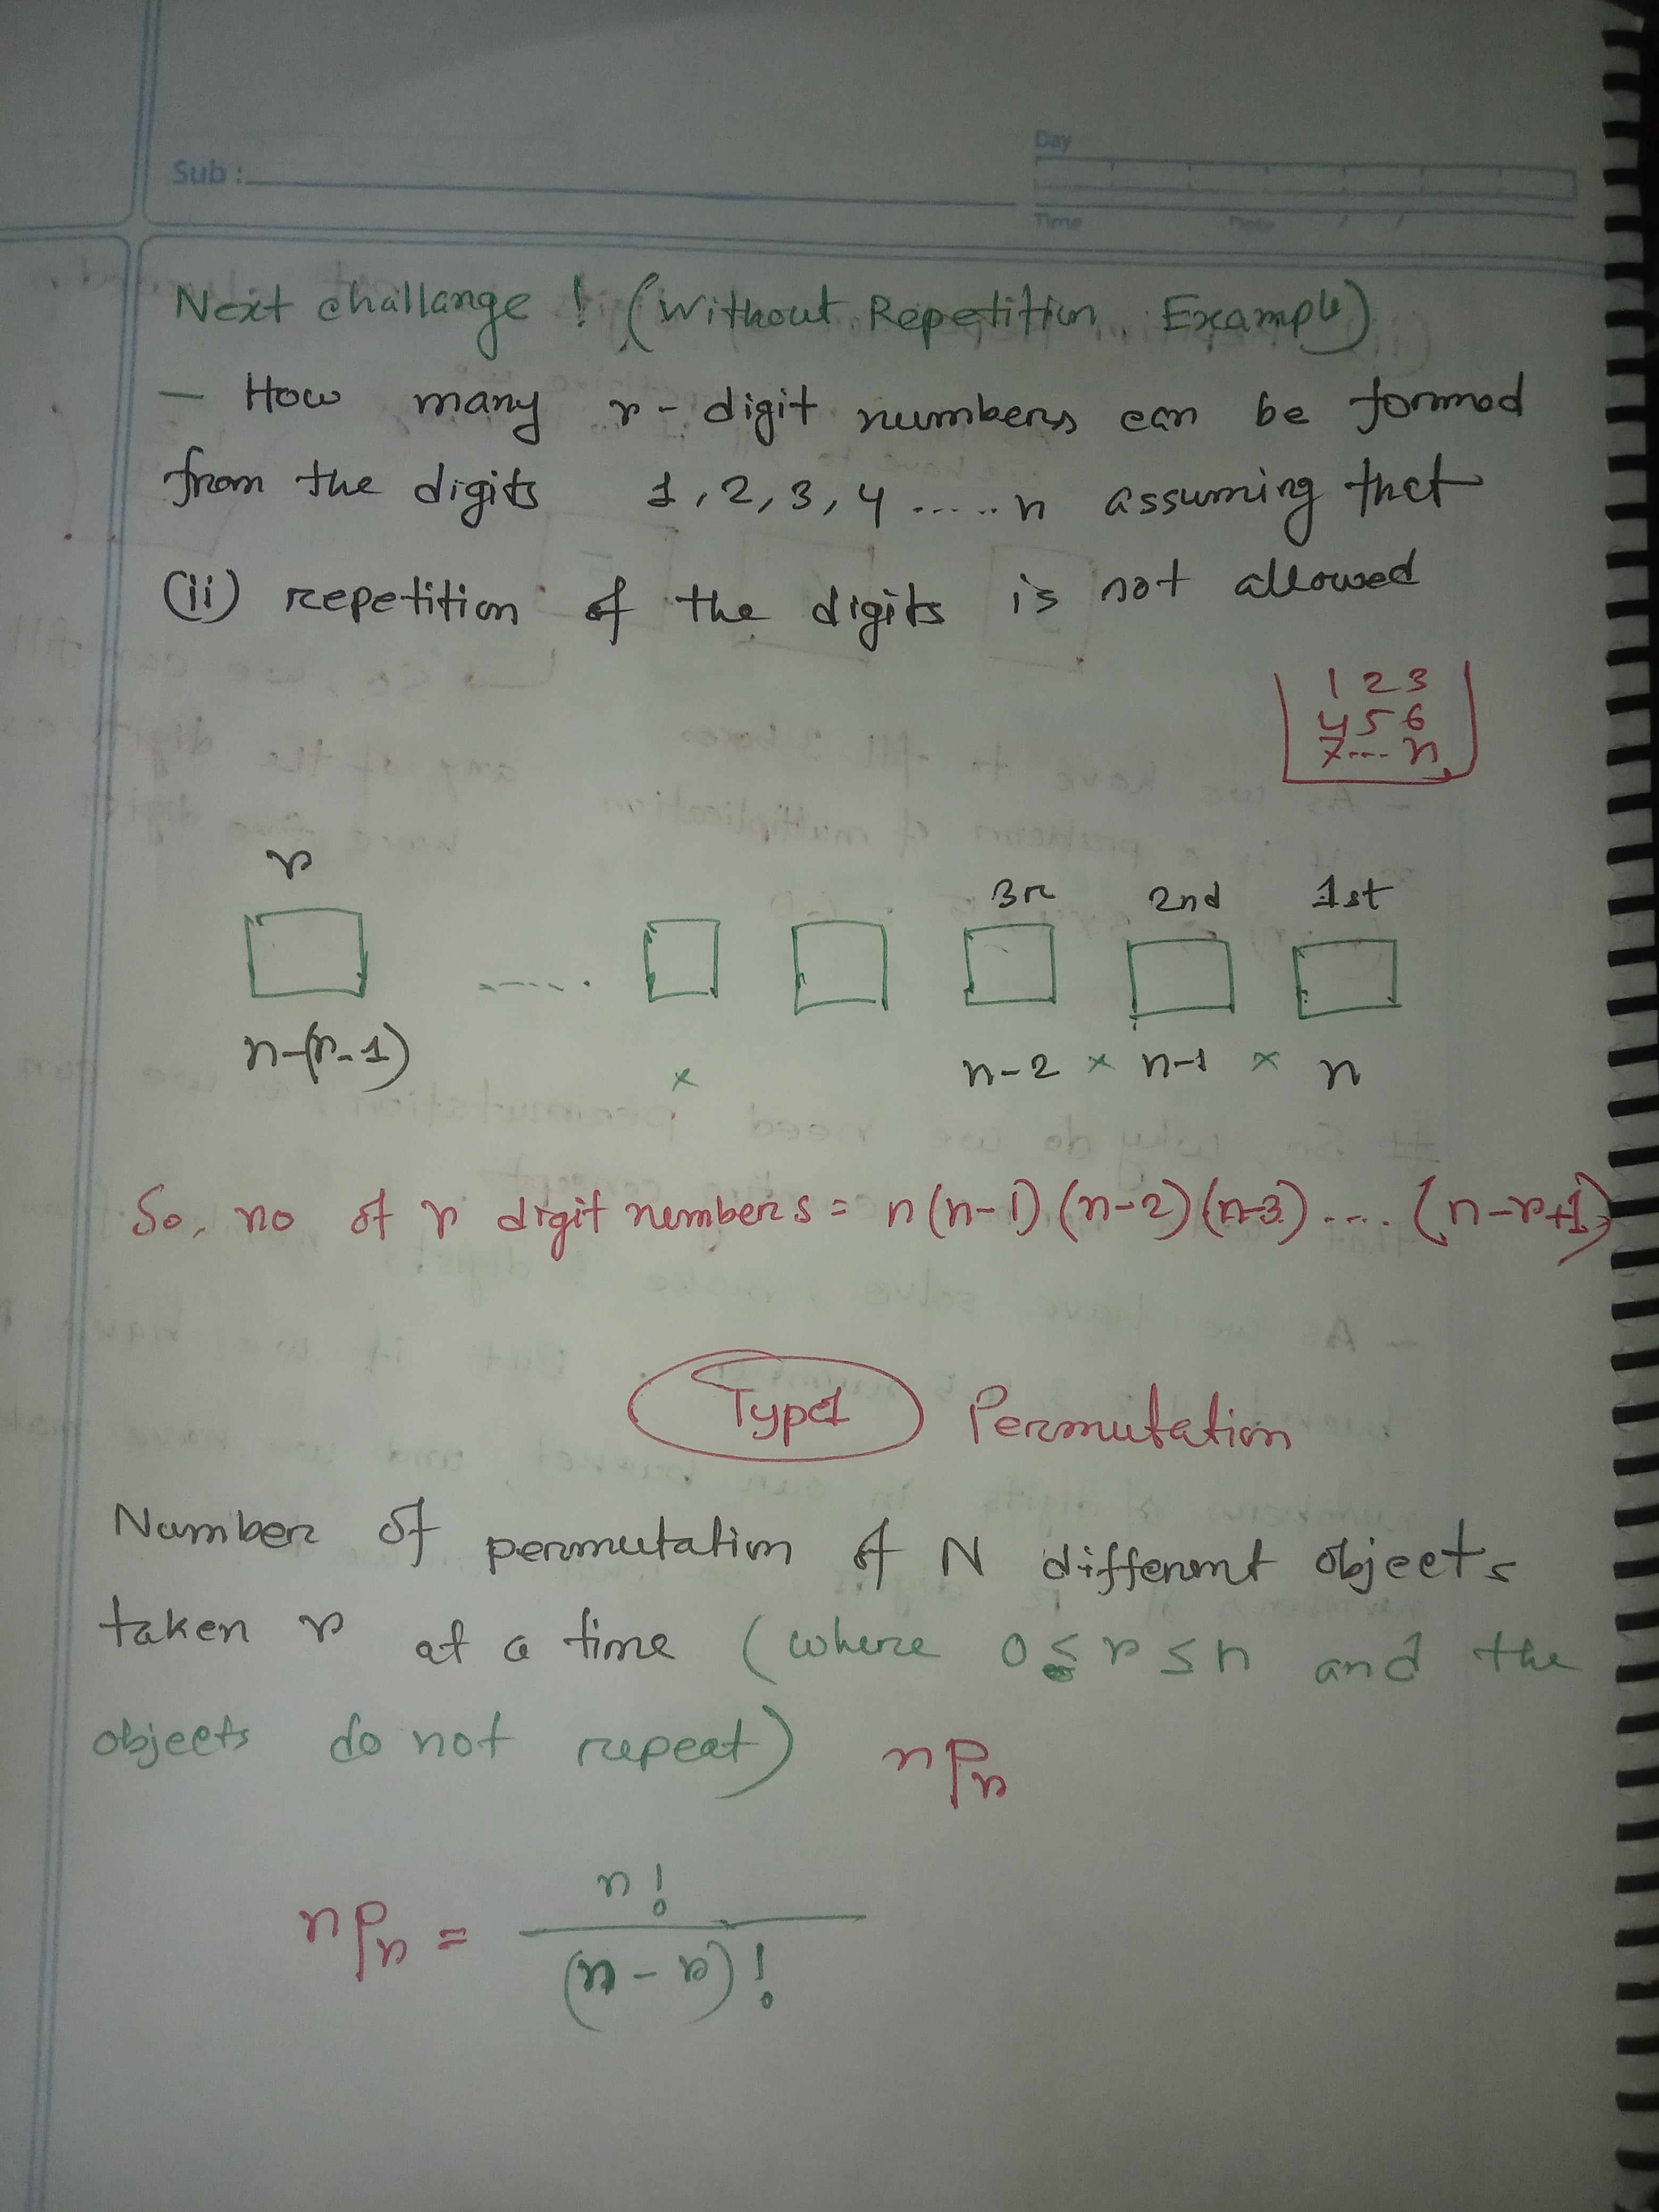 Sub :
Day
Time
Date / /
Next challange ! (Without Repetition Example)
— How many r-digit numbers can be formed
from the digits 1, 2, 3, 4 ..... n assuming that
(ii) repetition of the digits is not allowed
1 2 3
4 5 6
7 .... n
r
3r 2nd 1st
.....
n-(r-1) × n-2 × n-1 × n
So, no of r digit numbers = n(n-1)(n-2)(n-3) .... (n-r+1)
Type1 Permutation
Number of permutation of N different objects
taken r at a time (where 0 ≤ r ≤ n and the
objects do not repeat) nPr
nPr = n!
(n-r)!